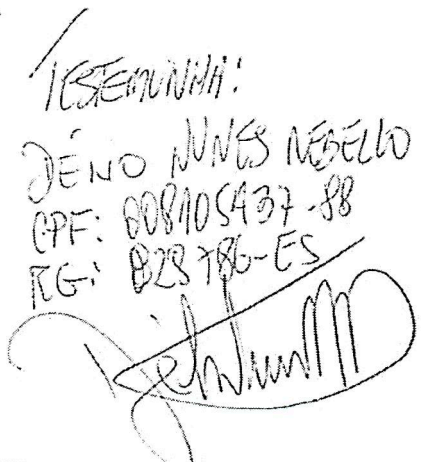 TESTEMUNHA:
DÉNO NUNES NEBELLO
CPF: 008105437-88
RG: 828786-ES